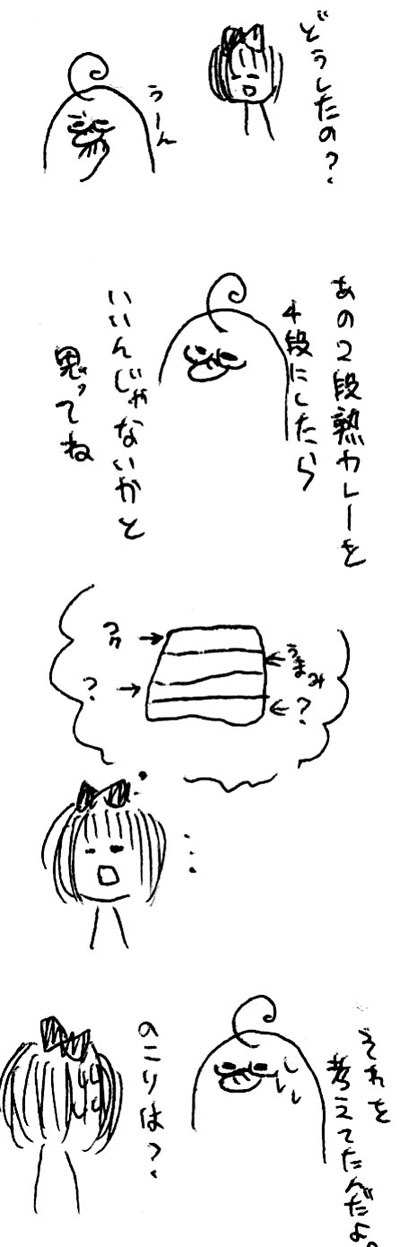 どうしたの?
うーん
あの2段熟カレーを
4段にしたら
いいんじゃないかと
思ってね
コク
うまみ
?
?
...
それを
考えてたんだよ。
のこりは?